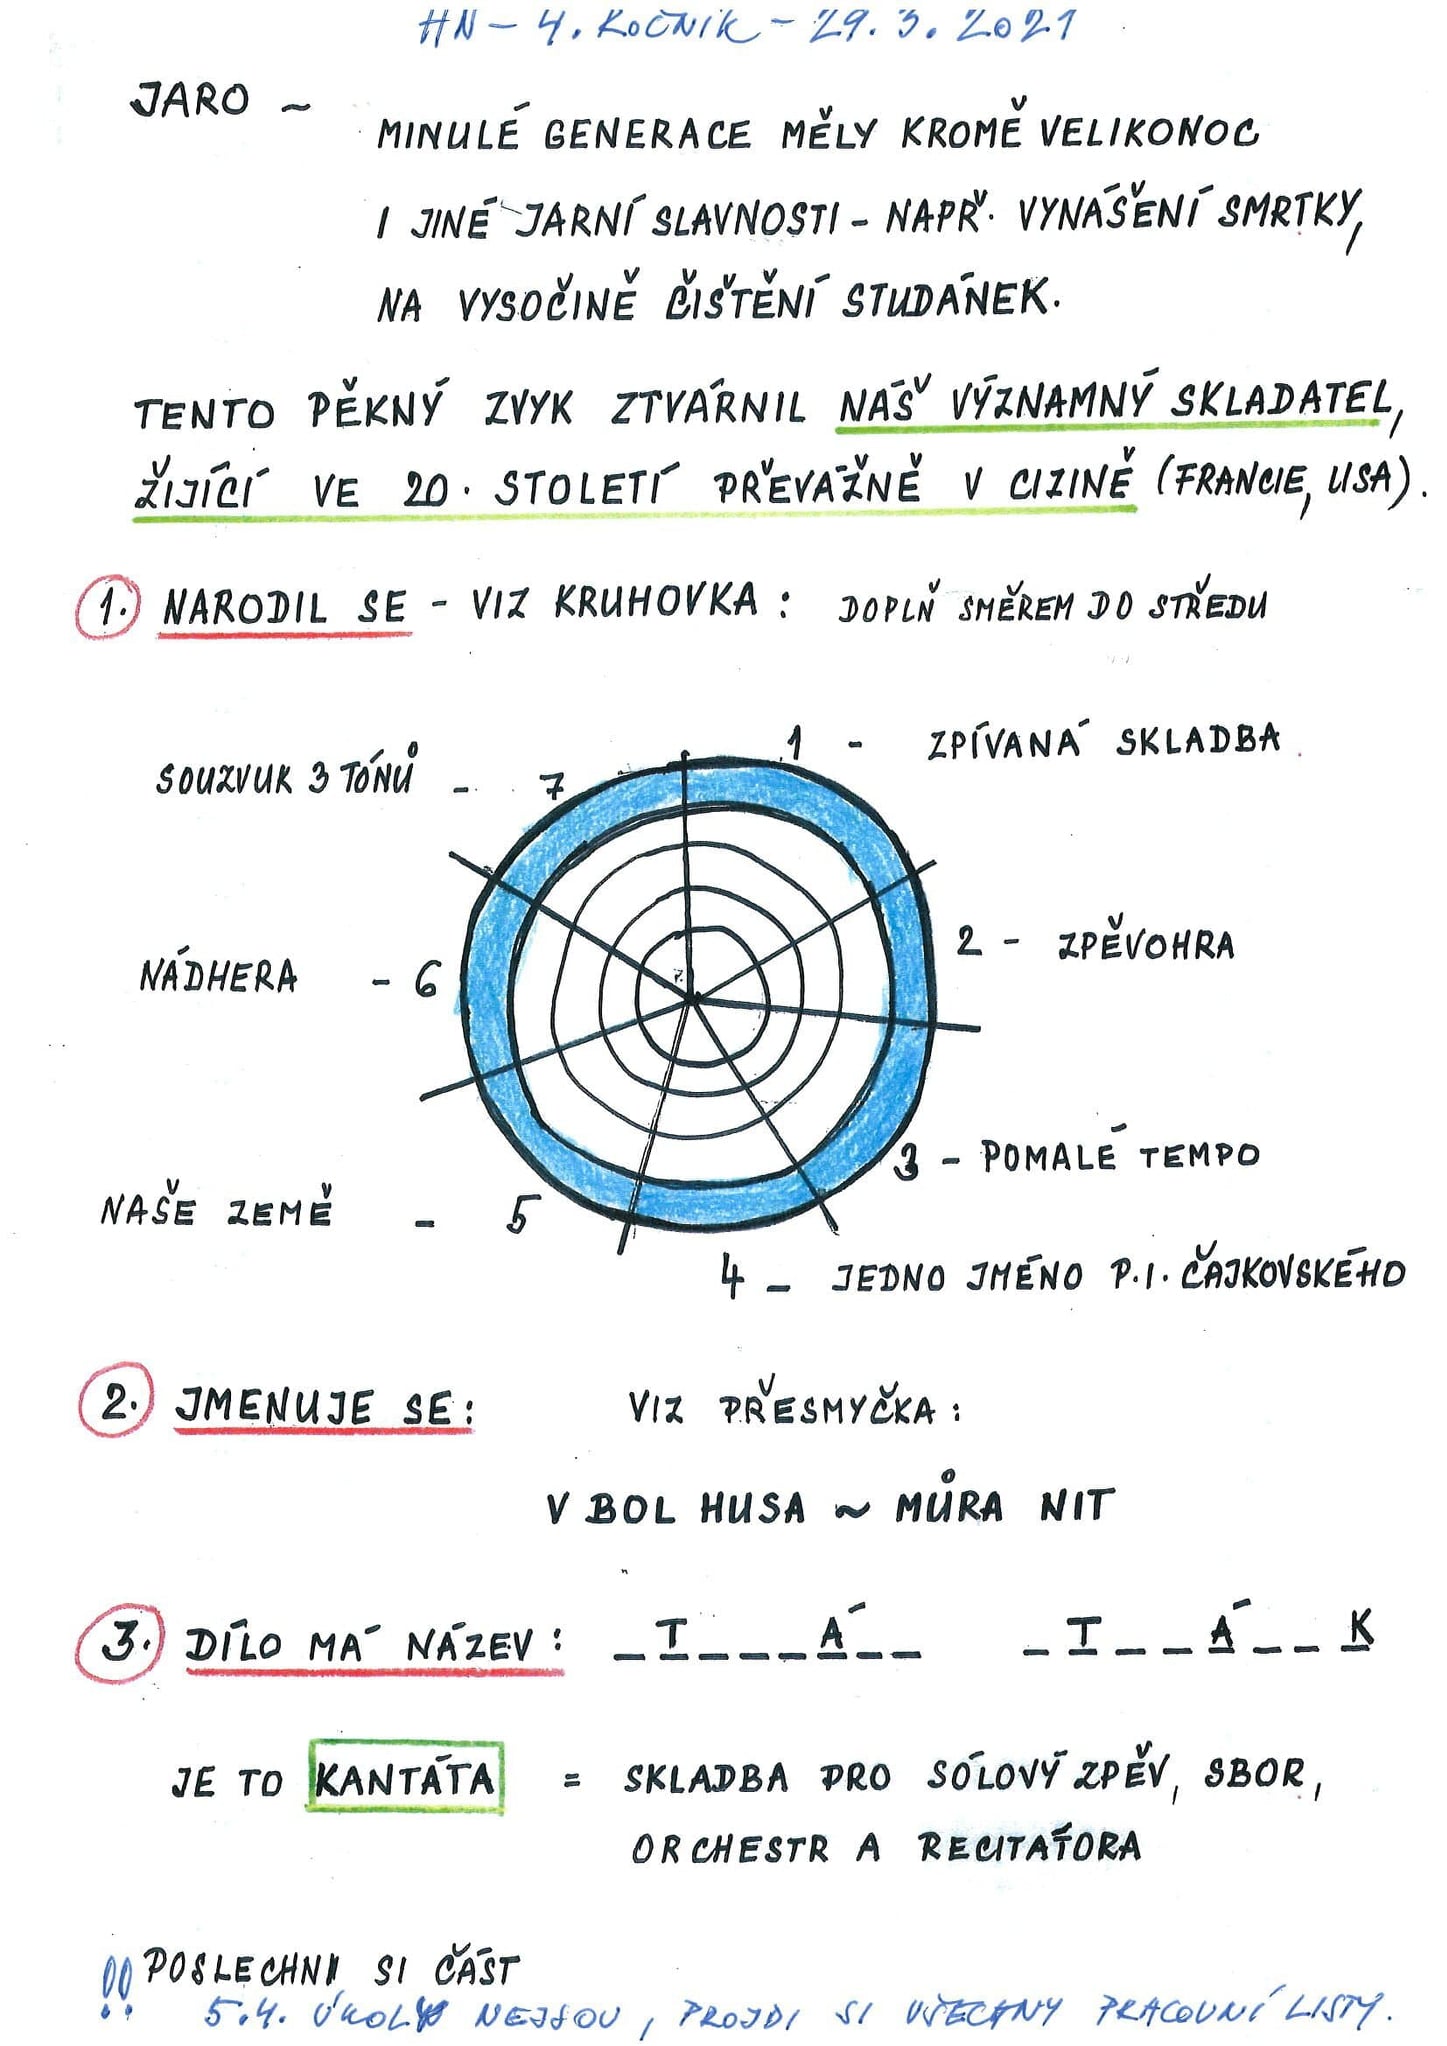 HN - 4. ROČNÍK - 29. 3. 2021
JARO ~
MINULÉ GENERACE MĚLY KROMĚ VELIKONOC
I JINÉ JARNÍ SLAVNOSTI - NAPŘ. VYNÁŠENÍ SMRTKY,
NA VYSOČINĚ ČIŠTĚNÍ STUDÁNEK.
TENTO PĚKNÝ ZVYK ZTVÁRNIL NÁŠ VÝZNAMNÝ SKLADATEL,
ŽIJÍCÍ VE 20. STOLETÍ PŘEVÁŽNĚ V CIZINĚ (FRANCIE, USA).
1. NARODIL SE - VIZ KRUHOVKA: DOPLŇ SMĚREM DO STŘEDU
1 - ZPÍVANÁ SKLADBA
SOUZVUK 3 TÓNŮ - 7
2 - ZPĚVOHRA
NÁDHERA - 6
3 - POMALÉ TEMPO
NAŠE ZEMĚ - 5
4 - JEDNO JMÉNO P.I. ČAJKOVSKÉHO
2. JMENUJE SE: VIZ PŘESMYČKA:
V BOL HUSA ~ MŮRA NIT
3. DÍLO MÁ NÁZEV: _ T _ _ _ Á _ _ _ T _ _ Á _ _ K
JE TO KANTÁTA = SKLADBA PRO SÓLOVÝ ZPĚV, SBOR,
ORCHESTR A RECITÁTORA
!! POSLECHNI SI ČÁST
5.4. ÚKOLY NEJSOU, PROJDI SI VŠECHNY PRACOVNÍ LISTY.